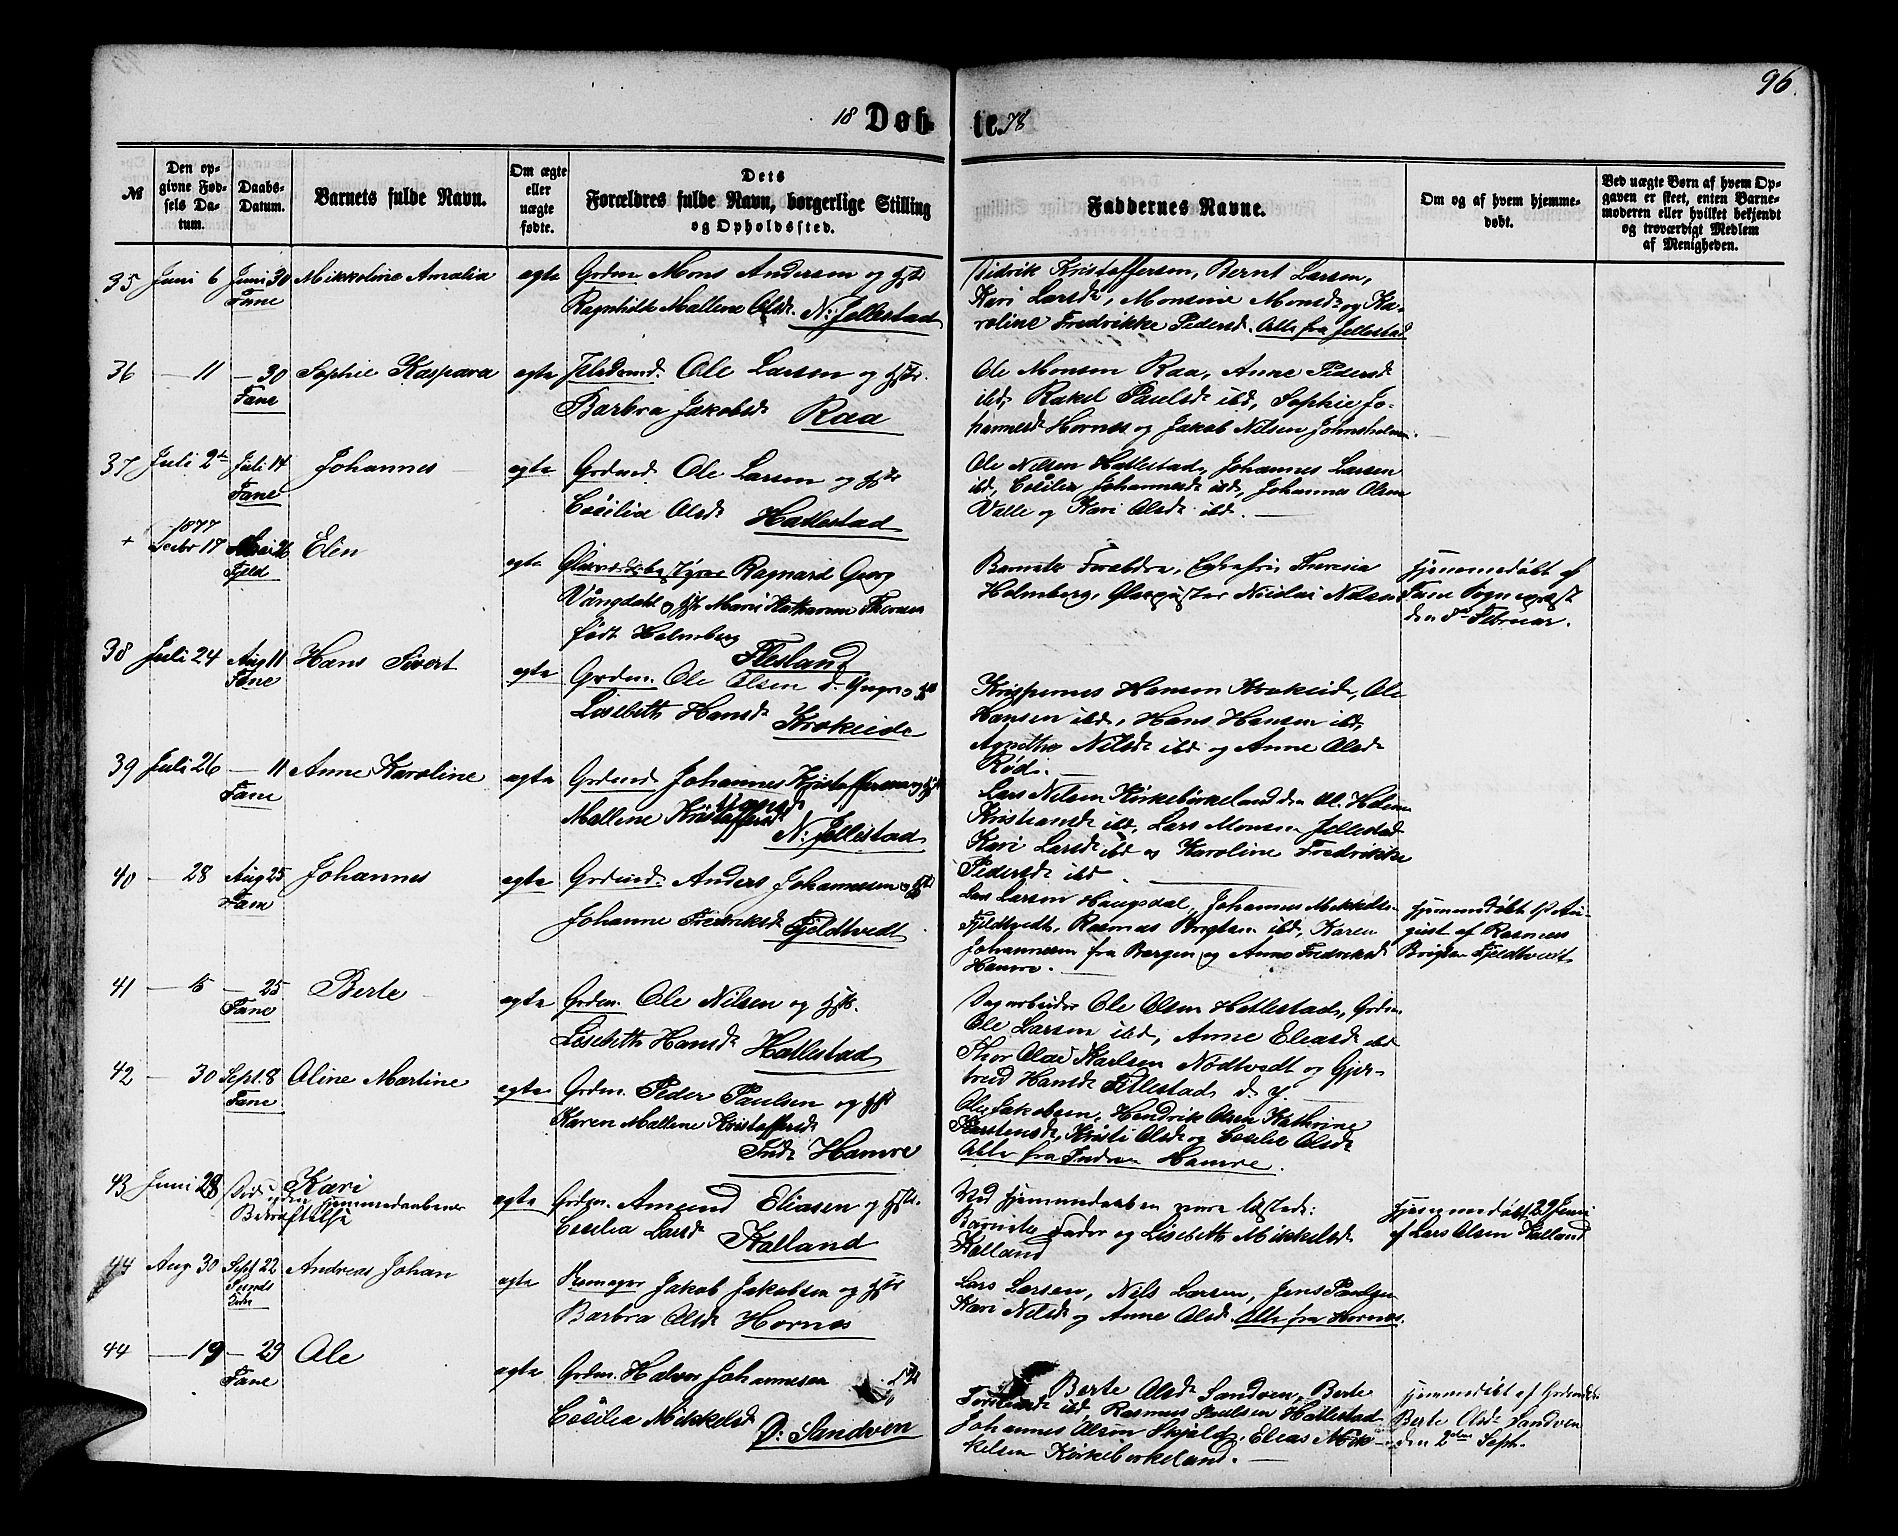 96.
18 Døbte. 78
№
Den opgivne Fødsels Datum.
Daabs-Datum.
Barnets fulde Navn.
Om ægte eller uægte fødte.
Dets Forældres fulde Navn, borgerlige Stilling og Opholdssted.
Faddernes Navne.
Om og af hvem hjemmedøbt.
Ved uægte Børn af hvem Opgaven er skeet, enten Barnemoderen eller hvilket bekjendt og troværdigt Medlem af Menigheden.
35 Juni 6 Juni 30 Mikkoline Amalia egte Grdm. Mons Andersen og Hst
Fane Ragnhilde Mallene Olsd. N: Jellestad
Didrik Kristoffersen, Bernt Larsen,
Kari Larsd, Monsine Monsd og Ka-
roline Fredrikke Pedersd. Alle fra Jellestad
36 — 11 — 30 Sophie Kaspara egte Ole Larsen og Hst.
Fane Barbra Jakobsd Raa
Ole Monsen Raa, Anne Pedersd
ibd, Rakel Paulsd ibd, Sophie Jo-
hannesd Hornes og Jakob Nilsen Johnsholmen.
37 Juli 2 Juli 14 Johannes egte Grdmd. Ole Larsen og Hst
Fane Cecilia Olsd Hatlestad
Ole Nilsen Hatlestad, Johannes Larsen
ibd, Cecilia Johannesd ibd, Johannes Olsen
Valle og Kari Olsd ibd. —
+ 1877
Decbr 17 Mai 26 Elen egte Ragnard Georg
Fjeld Vångdahl og Hst Marie Katharine
født Holmberg
Flesland
Barnets Forældre, Theresia
Holmberg, Nicolai Nilsen
Hjemmedøbt af
Fane Sognepræst
den 5te Februar.
38 Juli 24 Aug 11 Hans Sivert egte Grdm. Ole Olsen d. Yngre og Hst
Fane Lisebeth Hansd Krokeide
Hansen Krokeide, Ole
Hansen ibd, Hans Hansen ibd,
Agnethe Nilsd ibd og Anne Olsd
Rød. —
39 Juli 26 — 11 Anne Karoline egte Grdmd. Johannes Kristoffersen og Hst
Fane Mallene Kristoffersd
N: Jellestad
Lars Nilsen Kirkebirkeland
Kristiansd ibd, Lars Monsen Jellestad
Kari Larsd ibd og Karoline Fredrikke
Pedersd ibd. —
40 — 28 Aug 25 Johannes egte Grdmd. Anders Johannesen og Hst
Fane Johanne Fredriksd Fjeldtvedt
Lars Larsen Haugsdal, Johannes Mikkels-
Fjeldtvedt, Rasmus ibd, Karen
Johannesen fra Bergen og Anne Fredriksd
Hamre. —
Hjemmedøbt Au-
gust af Rasmus
Fjeldtvedt
41 — 15 — 25 Berte egte Grdm. Ole Nilsen og Hst.
Fane Lisebeth Hansd Hatlestad
Dagarbeider Ole Olsen Hatlestad, Grdm
Ole Larsen ibd, Anne Eliasd ibd
Karlsen Nødtvedt og Gjer-
trud Hansd Titlestad d. y. —
42 — 30 Sept. 8 Oline Martine egte Grdm. Peder Paulsen og Hst
Fane Karen Mallene Kristoffersd
Indr Hamre
Ole Jakobsen, Hendrik Olsen, Kathrine
Karstensd, Kristi Olsd og Cecilie Olsd
Alle fra Indre Hamre.
43 Juni 28 Død uden Hjemmedaabens Bekræftelse Kari egte Grdm. Amund Eliasen og Hst.
Cecilia Larsd Kalland
Ved Hjemmedaaben vare tilstede:
Barnets Fader og Lisebeth Mikkelsd
Kalland
Hjemmedøbt 29 Juni
af Lars Olsen Kalland
44 Aug 30 Sept 22 Andreas Johan egte Jakob Jakobsen og Hst
Barbra Olsd Hornes
Lars Larsen, Nils Larsen, Jens Paulsen
Kari Nilsd og Anne Olsd. Alle fra Hornes.
44 — 19 — 29 Ole egte Grdm. Halvor Johannesen Hst
Fane Cecilia Mikkelsd Ø: Sandven
Berte Olsd Sandven, Berte
ibd Rasmus Paulsen Hatlestad
Johannes Olson Skjold, Elias Mik-
kelsen Kirkebirkeland. —
Hjemmedøbt af
Berte Olsd Sandven
den 2den Sept.